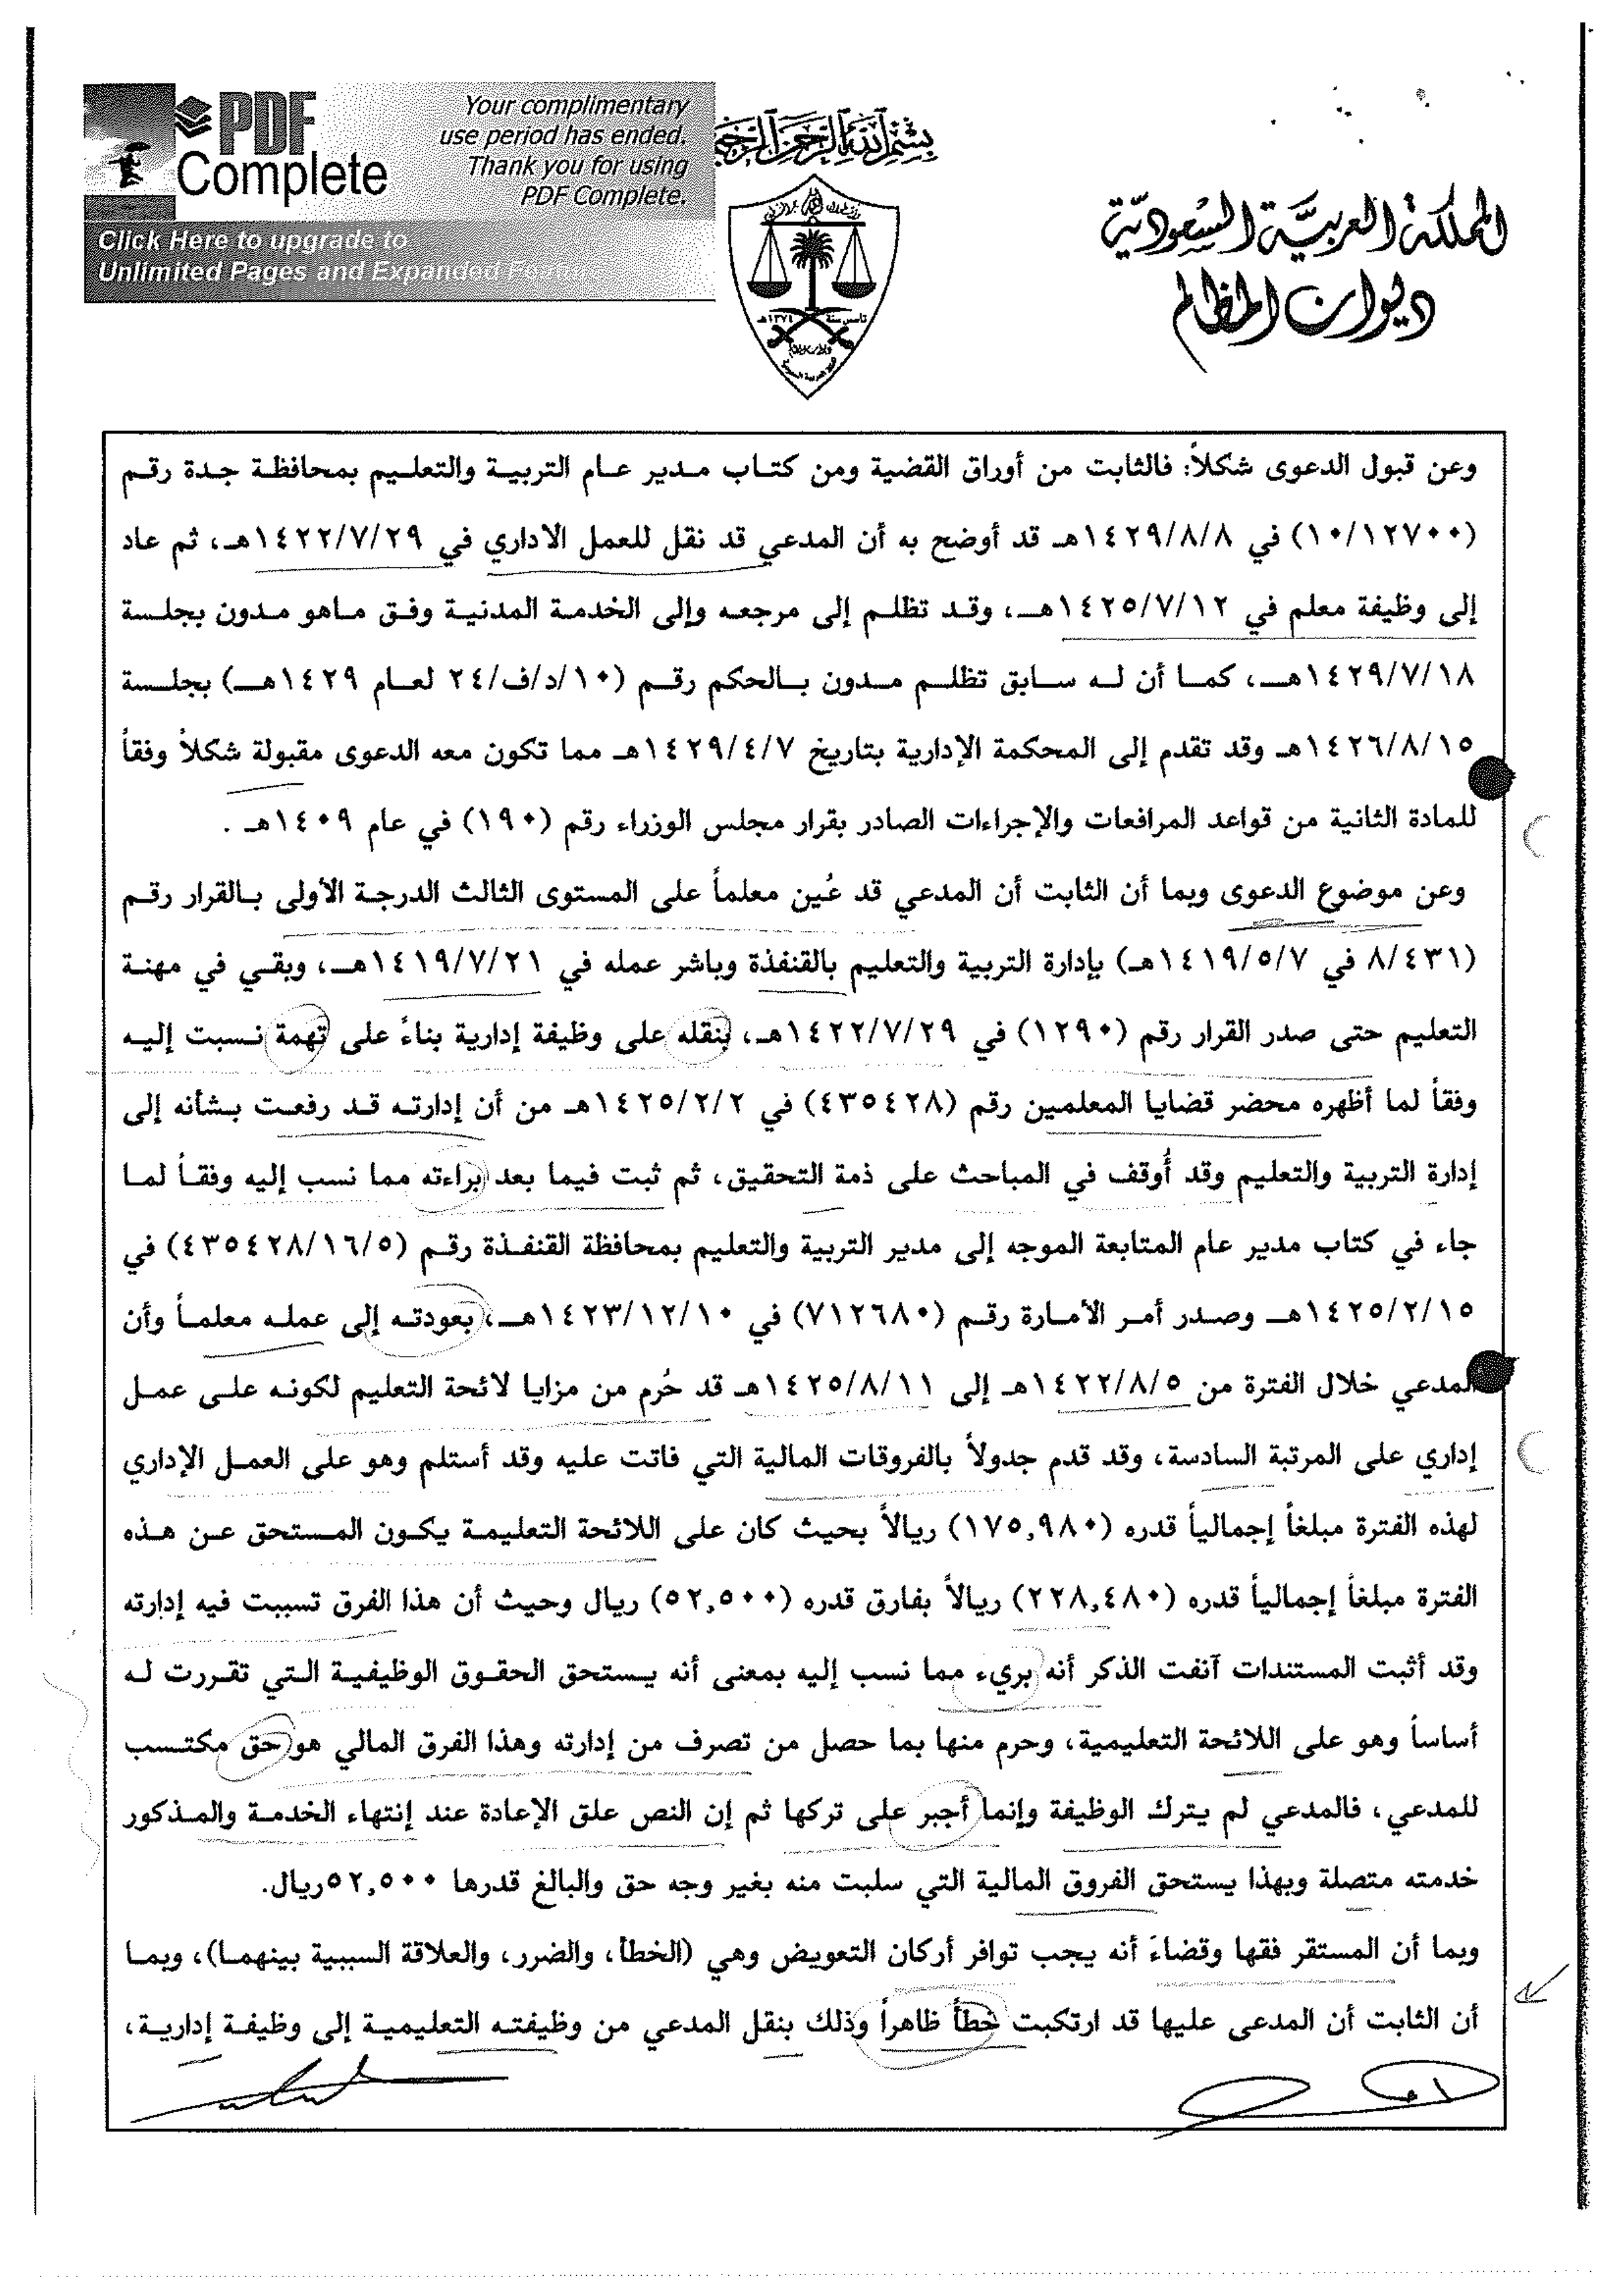 PDF Complete
Your complimentary
use period has ended.
Thank you for using
PDF Complete.
Click Here to upgrade to
Unlimited Pages and Expanded Features
بسم الله الرحمن الرحيم
المملكة العربية السعودية
ديوان المظالم
تأسس سنة ١٣٧٤هـ
وعن قبول الدعوى شكلاً: فالثابت من أوراق القضية ومن كتاب مدير عام التربية والتعليم بمحافظة جدة رقم
(١٠/١٢٧٠٠) في ١٤٢٩/٨/٨هـ قد أوضح به أن المدعي قد نقل للعمل الاداري في ١٤٢٢/٧/٢٩هـ، ثم عاد
إلى وظيفة معلم في ١٤٢٥/٧/١٢هـ، وقد تظلم إلى مرجعه وإلى الخدمة المدنية وفق ماهو مدون بجلسة
١٤٢٩/٧/١٨هـ، كما أن له سابق تظلم مدون بالحكم رقم (١٠/د/ف/٢٤ لعام ١٤٢٩هـ) بجلسة
١٤٢٦/٨/١٥هـ وقد تقدم إلى المحكمة الإدارية بتاريخ ١٤٢٩/٤/٧هـ مما تكون معه الدعوى مقبولة شكلاً وفقاً
للمادة الثانية من قواعد المرافعات والإجراءات الصادر بقرار مجلس الوزراء رقم (١٩٠) في عام ١٤٠٩هـ .
وعن موضوع الدعوى وبما أن الثابت أن المدعي قد عُين معلماً على المستوى الثالث الدرجة الأولى بالقرار رقم
(٨/٤٣١ في ١٤١٩/٥/٧هـ) بإدارة التربية والتعليم بالقنفذة وباشر عمله في ١٤١٩/٧/٢١هـ، وبقي في مهنة
التعليم حتى صدر القرار رقم (١٢٩٠) في ١٤٢٢/٧/٢٩هـ، بنقله على وظيفة إدارية بناءً على تهمة نسبت إليه
وفقاً لما أظهره محضر قضايا المعلمين رقم (٤٣٥٤٢٨) في ١٤٢٥/٢/٢هـ من أن إدارته قد رفعت بشأنه إلى
إدارة التربية والتعليم وقد أُوقف في المباحث على ذمة التحقيق، ثم ثبت فيما بعد براءته مما نسب إليه وفقاً لما
جاء في كتاب مدير عام المتابعة الموجه إلى مدير التربية والتعليم بمحافظة القنفذة رقم (٤٣٥٤٢٨/١٦/٥) في
١٤٢٥/٢/١٥هـ وصدر أمر الأمارة رقم (٧١٢٦٨٠) في ١٤٢٣/١٢/١٠هـ، بعودته إلى عمله معلماً وأن
المدعي خلال الفترة من ١٤٢٢/٨/٥هـ إلى ١٤٢٥/٨/١١هـ قد حُرم من مزايا لائحة التعليم لكونه على عمل
إداري على المرتبة السادسة، وقد قدم جدولاً بالفروقات المالية التي فاتت عليه وقد أستلم وهو على العمل الإداري
لهذه الفترة مبلغاً إجمالياً قدره (١٧٥,٩٨٠) ريالاً بحيث كان على اللائحة التعليمة يكون المستحق عن هذه
الفترة مبلغاً إجمالياً قدره (٢٢٨,٤٨٠) ريالاً بفارق قدره (٥٢,٥٠٠) ريال وحيث أن هذا الفرق تسببت فيه إدارته
وقد أثبت المستندات آنفت الذكر أنه بريء مما نسب إليه بمعنى أنه يستحق الحقوق الوظيفية التي تقررت له
أساساً وهو على اللائحة التعليمية، وحرم منها بما حصل من تصرف من إدارته وهذا الفرق المالي هو حق مكتسب
للمدعي، فالمدعي لم يترك الوظيفة وإنما أجبر على تركها ثم إن النص علق الإعادة عند إنتهاء الخدمة والمذكور
خدمته متصلة وبهذا يستحق الفروق المالية التي سلبت منه بغير وجه حق والبالغ قدرها ٥٢,٥٠٠ريال.
وبما أن المستقر فقها وقضاءً أنه يجب توافر أركان التعويض وهي (الخطأ، والضرر، والعلاقة السببية بينهما)، وبما
أن الثابت أن المدعى عليها قد ارتكبت خطأً ظاهراً وذلك بنقل المدعي من وظيفته التعليمية إلى وظيفة إدارية،